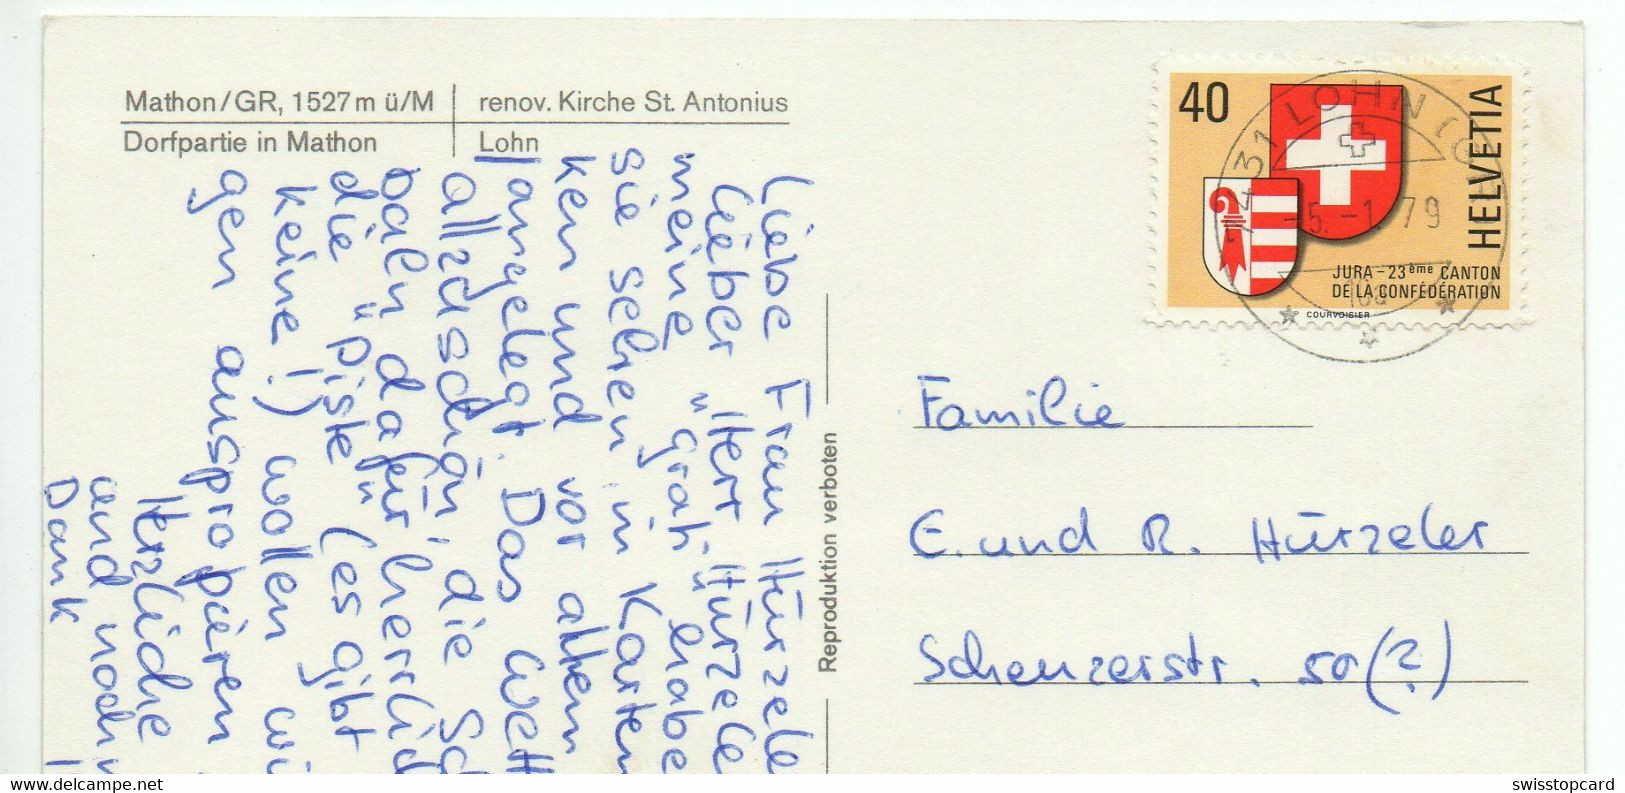 Mathon/GR, 1527m ü/M
Dorfpartie in Mathon
renov. Kirche St. Antonius
Lohn
40
HELVETIA
JURA – 23ème CANTON
DE LA CONFÉDÉRATION
COURVOISIER
7431 LOHN (G
-5.-1.79
Liebe Frau Hürzele
lieber "Herr Hürzele
meine "Grah." habe
sie selien in Karten
ken und vor allem
langelegt. Das Wett
allzuschön, die Sc
baln dafür herrlic
die "Piste" (es gibt
keine!) wollen wi
gen auspropieren
Herzliche
und noch
Dank
Reproduktion verboten
Familie
E. und R. Hürzeler
Schenzerstr. 50 (?)
www.delcampe.net
swisstopcard